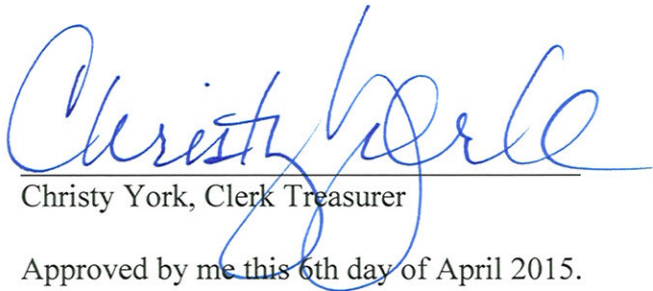 Christy York
Christy York, Clerk Treasurer
Approved by me this 6th day of April 2015.